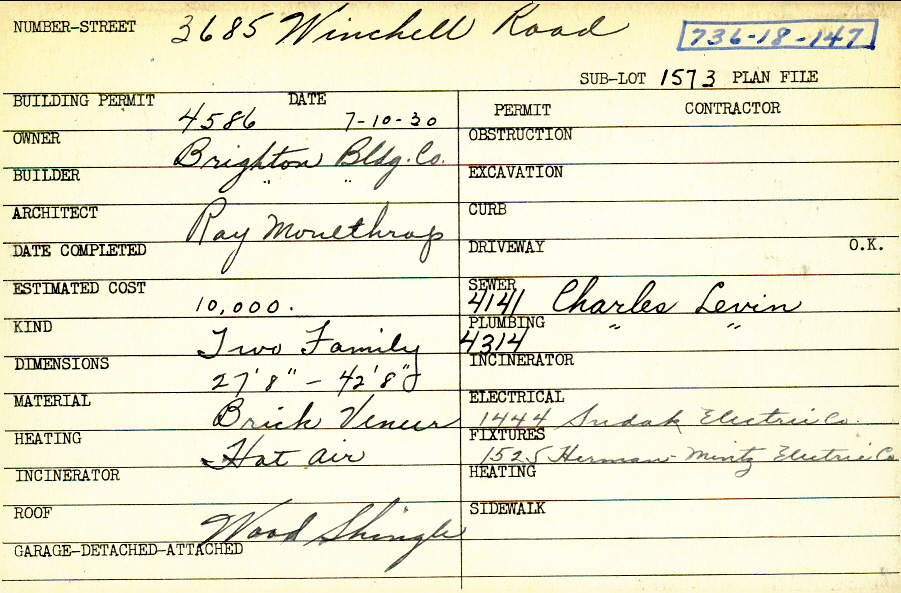 NUMBER-STREET 3685 Winchell Road 736-18-147
SUB-LOT 1573 PLAN FILE
BUILDING PERMIT 4586 DATE 7-10-30
OWNER Brighton Bldg. Co.
BUILDER " "
ARCHITECT Ray
DATE COMPLETED
ESTIMATED COST 10,000.
KIND Two Family
DIMENSIONS 27'8" - 42'8"
MATERIAL Brick Veneer
HEATING Hot air
INCINERATOR
ROOF Wood Shingle
GARAGE-DETACHED-ATTACHED
PERMIT CONTRACTOR
OBSTRUCTION
EXCAVATION
CURB
DRIVEWAY O.K.
SEWER 4141 Charles Levin
PLUMBING 4314 " "
INCINERATOR
ELECTRICAL 1444 Sudak Electric Co.
FIXTURES 1525 Herman-Mintz Electric Co
HEATING
SIDEWALK